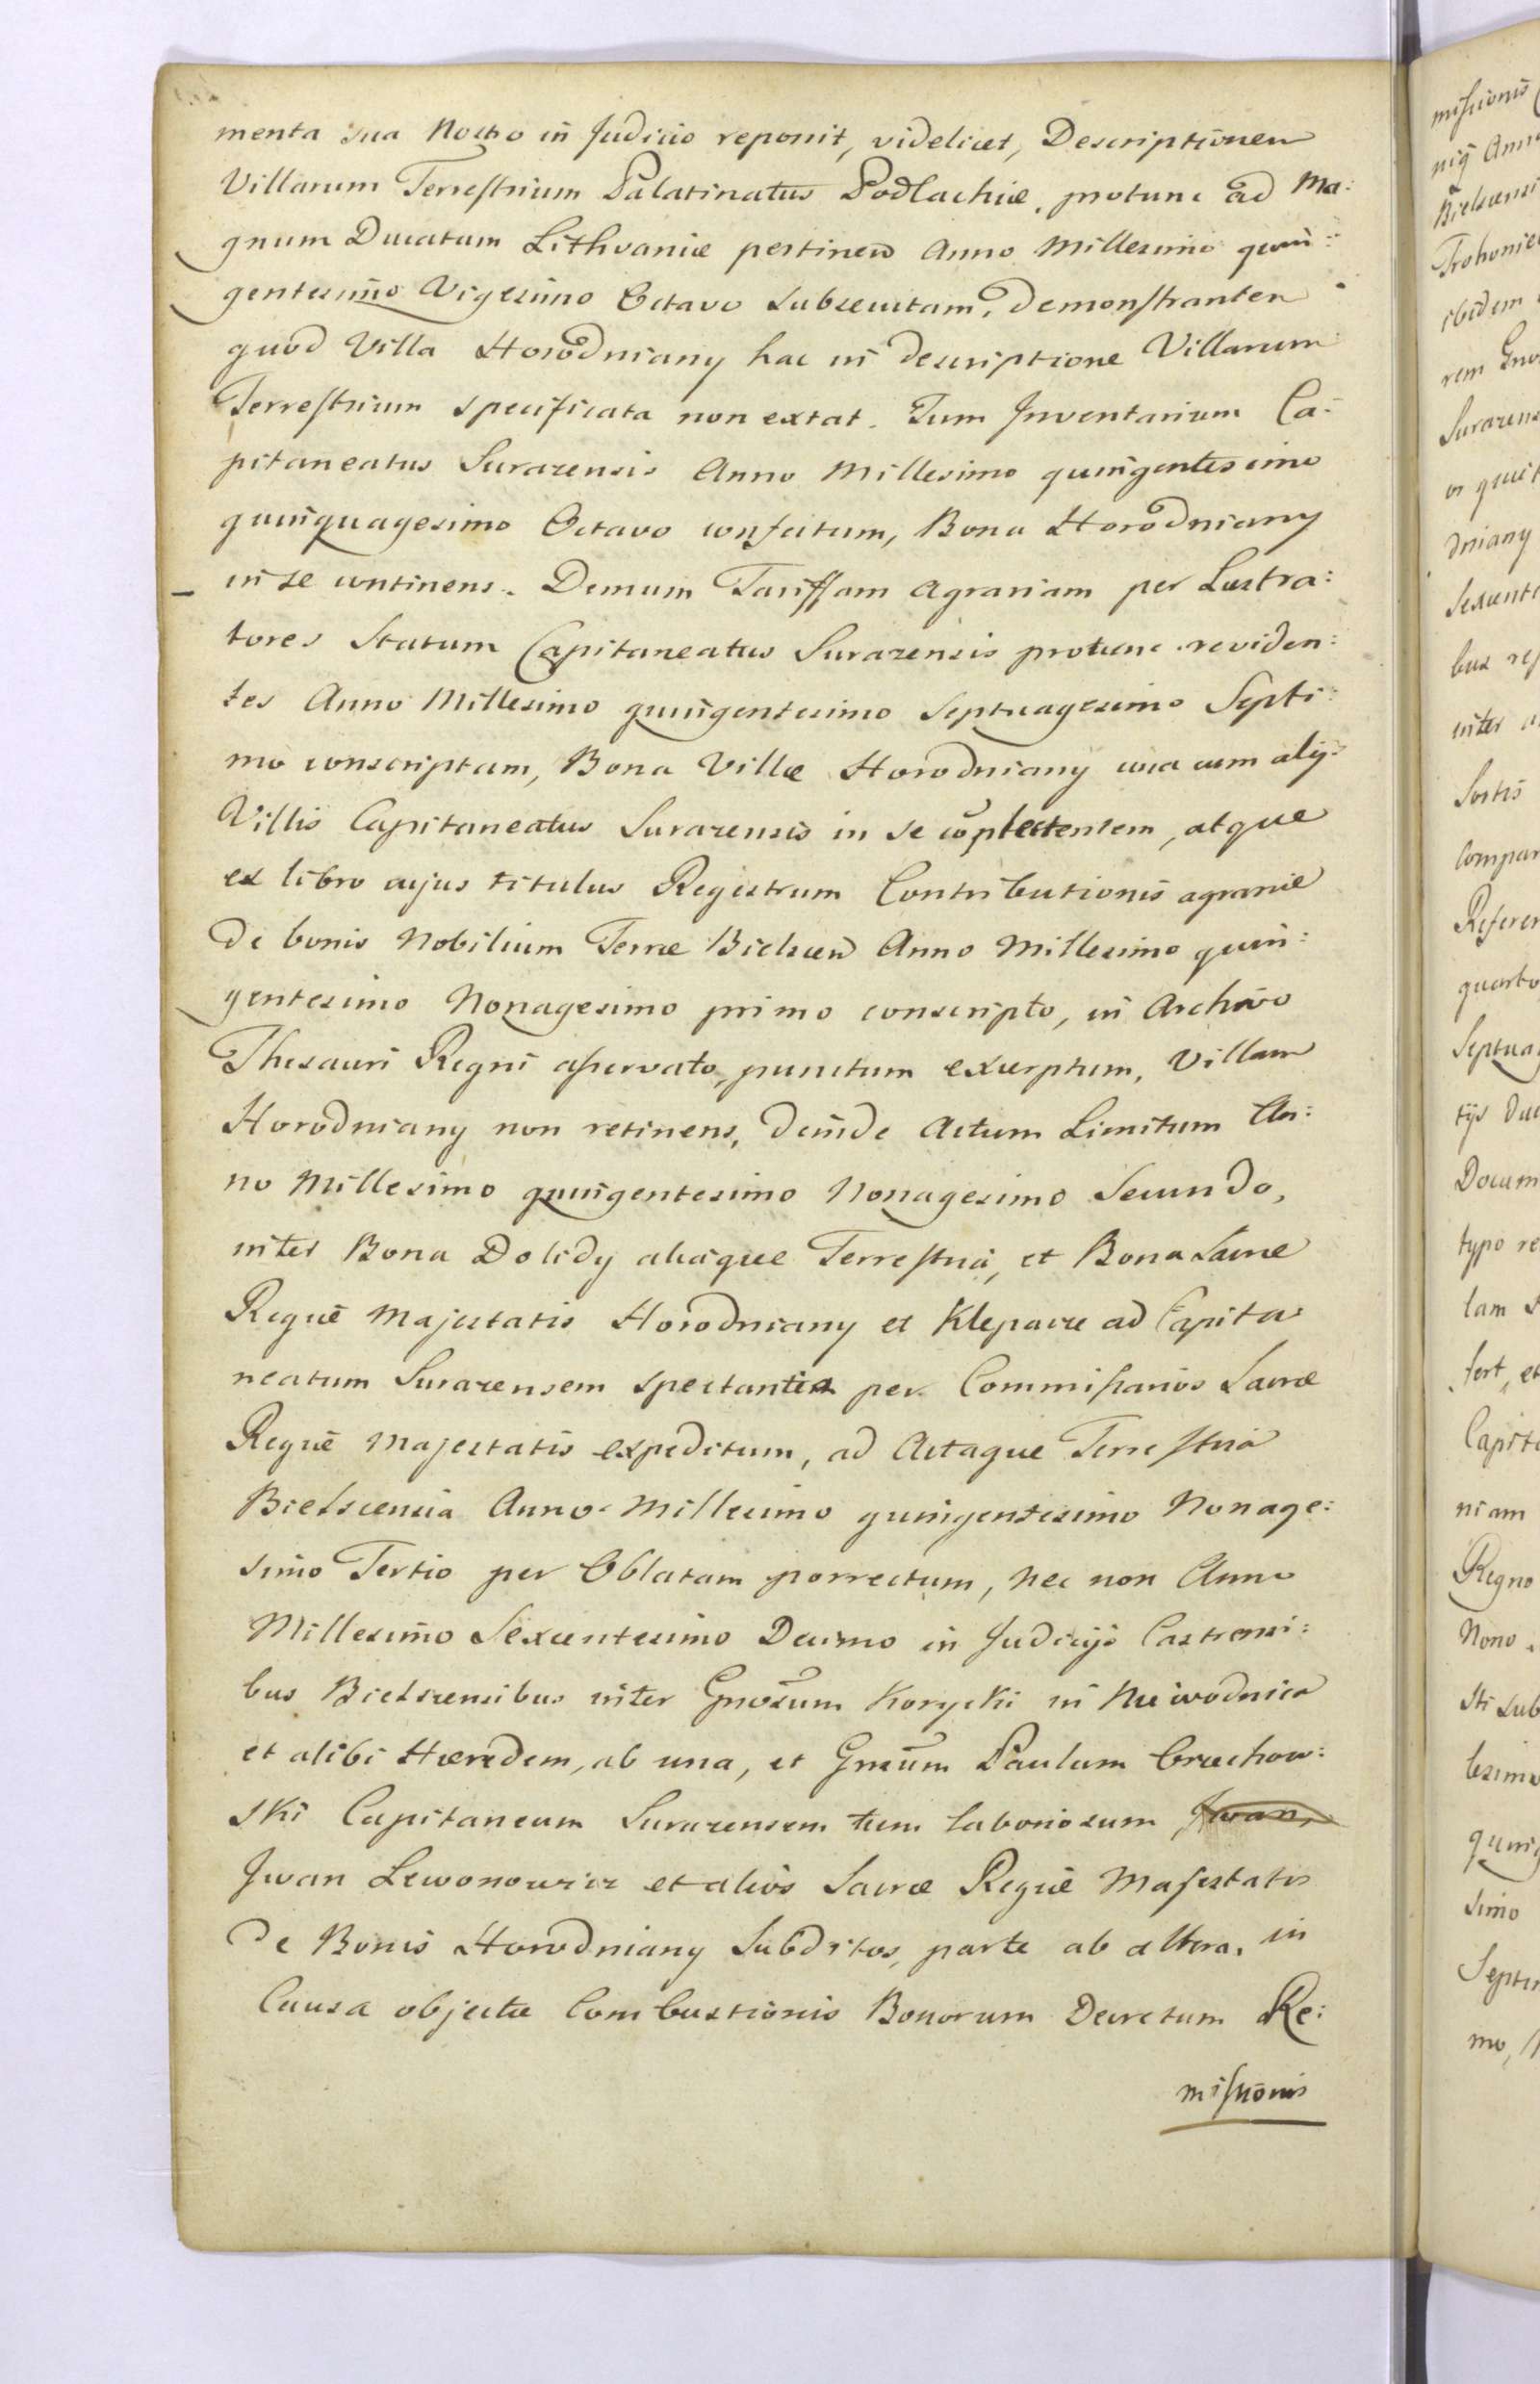 menta sua Nostro in Judicio reponit, videlicet, Descriptionem
Villarum Terrestrium Palatinatus Podlachiæ, protunc ad Ma:
gnum Ducatum Lithvaniæ pertinen Anno Millesimo quin:
gentesimo Vigesimo Octavo Subsecutam, demonstrantem
quod Villa Horodniany hac in descriptione Villarum
Terrestrium specificata non extat. Tum Inventarium Ca:
pitaneatus Surazensis Anno Millesimo quingentesimo
quinquagesimo Octavo confectum, Bona Horodniany
in se continens. Demum Tariffam Agrariam per Lustra:
tores Statum Capitaneatus Surazensis protunc reviden:
tes Anno Millesimo quingentesimo Septuagesimo Septi:
mo conscriptam, Bona Villæ Horodniany una cum alijs
Villis Capitaneatus Surazensis in se cõplectentem, atque
ex libro cujus titulus Registrum Contributionis agrariæ
de bonis Nobilium Terræ Bielscen Anno Millesimo quin:
gentesimo Nonagesimo primo conscripto, in Archivo
Thesauri Regni asservato, punctum excerptum, Villam
Horodniany non retinens, deinde Actum Limitum An:
no Millesimo quingentesimo Nonagesimo Secundo,
inter Bona Dolidy aliaque Terrestria, et Bona Sacræ
Regiæ Majestatis Horodniany et Klepacze ad Capita:
neatum Surazensem spectantia per Commissarios Sacræ
Regiæ Majestatis expeditum, ad Actaque Terrestria
Bielscensia Anno Millesimo quingentesimo Nonage:
simo Tertio per Oblatam porrectum, nec non Anno
Millesimo Sexcentesimo Decimo in Judicijs Castrensi:
bus Bielscensibus inter Gnosum Korycki in Niewodnica
et alibi Hæredem, ab una, et Gnsum Paulum Orzechow:
ski Capitaneum Surazensem tum laboriosum Jwan,
Jwan Lewonowicz et alios Sacræ Regiæ Majestatis
de Bonis Horodniany Subditos, parte ab altera, in
Causa objectæ Combustionis Bonorum Decretum Re:
missionis
missionis
nis Anno
Bielscensi
ibidem
rem Gno
Surazens
dniany
inter a
Sortis
Compar
Referen
quarto
Septuag
tijs duc
Docum
typo re
lam
fert, et
Capita
niam
Regno
Nono
sti sub
lesimo
quing
simo
Septu
mo,